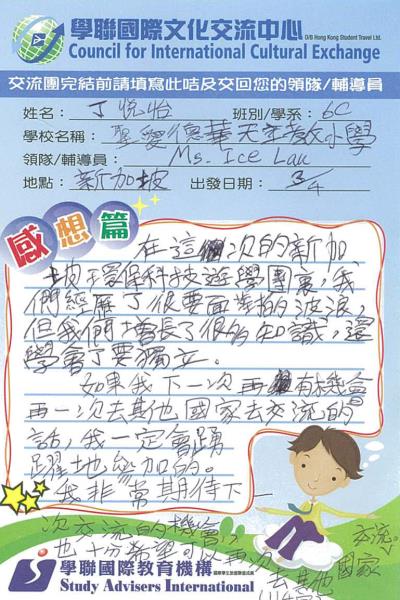 學聯國際文化交流中心 D/B Hong Kong Student Travel Ltd.
Council for International Cultural Exchange
交流團完結前請填寫此咭及交回您的領隊/輔導員
姓名： 丁悅怡 班別/學系： 6C
學校名稱： 聖愛德華天主教小學
領隊/輔導員： Ms. Ice Lau
地點： 新加坡 出發日期： 3/4
感想篇
在這次的新加
坡環保科技遊學團裏，我
們經歷了很要面對的波浪，
但我們增長了很多知識，還
學會了要獨立。
如果我下一次再有機會
再一次去其他國家去交流的
話，我一定會踴
躍地參加的。
我非常期待下一
次交流的機會，
也十分希望可以再次
去其他國家
交流。
學聯國際教育機構
Study Advisers International